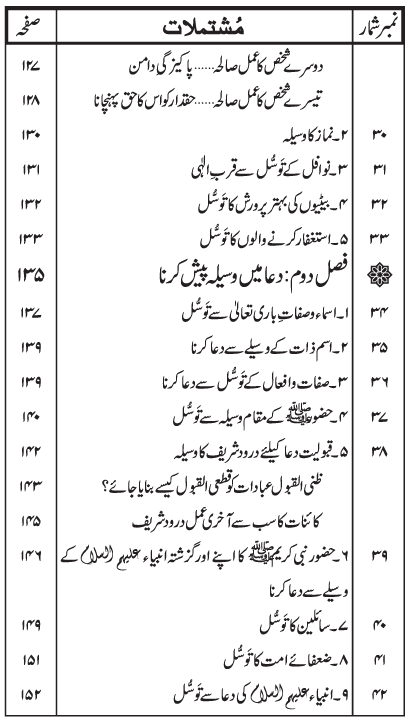 نمبر شمار مُشتملات صفحہ
دوسرے شخص کا عمل صالحہ...... پاکیزگی دامن ۱۲۷
تیسرے شخص کا عمل صالحہ......حقدار کو اس کا حق پہنچانا ۱۲۸
۳۰ ۲۔ نماز کا وسیلہ ۱۳۰
۳۱ ۳۔ نوافل کے تَوسُّل سے قربِ الٰہی ۱۳۱
۳۲ ۴۔ بیٹیوں کی بہتر پرورش کا تَوسُّل ۱۳۲
۳۳ ۵۔ استغفار کرنے والوں کا تَوسُّل ۱۳۳
فصل دوم: دعا میں وسیلہ پیش کرنا ۱۳۵
۳۴ ۱۔ اسماء و صفاتِ باری تعالیٰ سے تَوسُّل ۱۳۷
۳۵ ۲۔ اسم ذات کے وسیلے سے دعا کرنا ۱۳۹
۳۶ ۳۔ صفات و افعال کے تَوسُّل سے دعا کرنا ۱۳۹
۳۷ ۴۔ حضور ﷺ کے مقام وسیلہ سے تَوسُّل ۱۴۰
۳۸ ۵۔ قبولیت دعا کیلئے درود شریف کا وسیلہ ۱۴۲
ظنی القبول عبادات کو قطعی القبول کیسے بنایا جائے؟ ۱۴۳
کائنات کا سب سے آخری عمل درود شریف ۱۴۵
۳۹ ۶۔ حضور نبی کریم ﷺ کا اپنے اور گزشتہ انبیاء علیہم السلام کے ۱۴۶
وسیلے سے دعا کرنا
۴۰ ۷۔ سائلین کا تَوسُّل ۱۴۹
۴۱ ۸۔ ضعفائے امت کا تَوسُّل ۱۵۱
۴۲ ۹۔ انبیاء علیہم السلام کی دعا سے تَوسُّل ۱۵۲